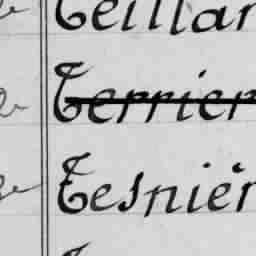 Teillar
Terrier
Tesnier